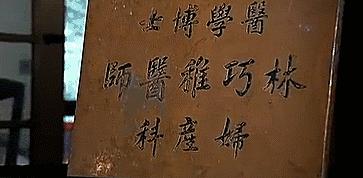 醫學博士
林巧稚醫師
婦產科